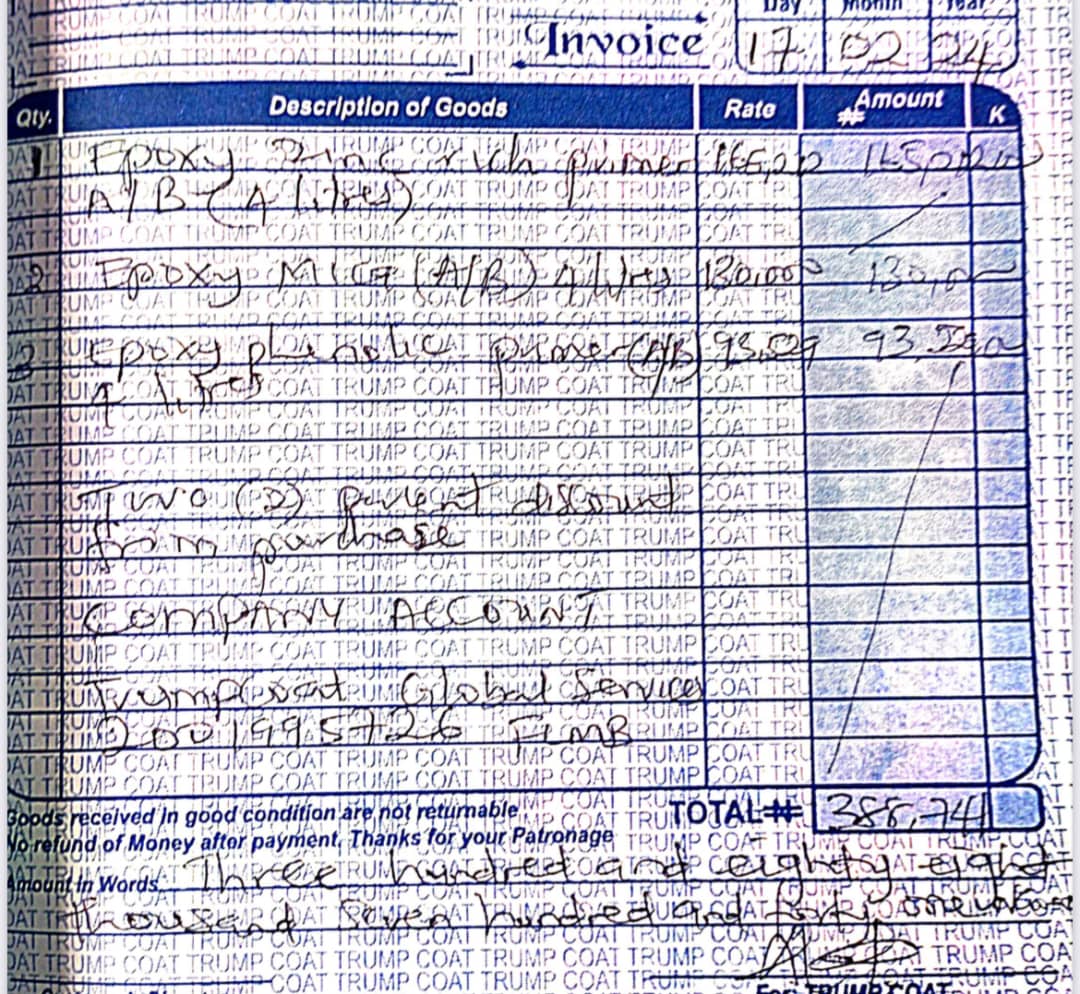 Day Month Year
Invoice 17 02 24
Qty. Description of Goods Rate Amount
₦ K
1 Epoxy Zinc rich primer
A/B (4 litres)
2 Epoxy (A/B) 4 litres 130,000
3 Epoxy phenolic primer (A/B)
4 litres
Two (2) percent discount
from purchase
COMPANY ACCOUNT
Trumpcoat Global Services
2001995726
TOTAL ₦ 388,741
Goods received in good condition are not returnable
No refund of Money after payment, Thanks for your Patronage
Amount in Words Three hundred and eighty eight
thousand Seven hundred and forty one
For: TRUMP COAT